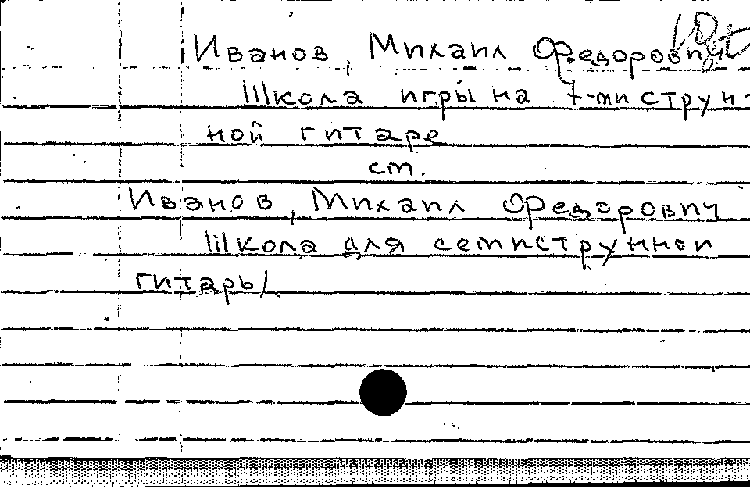 Иванов, Михаил Федорович
Школа игры на 7-ми струн-
ной гитаре
см.
Иванов, Михаил Федорович
Школа для семиструнной
гитары.